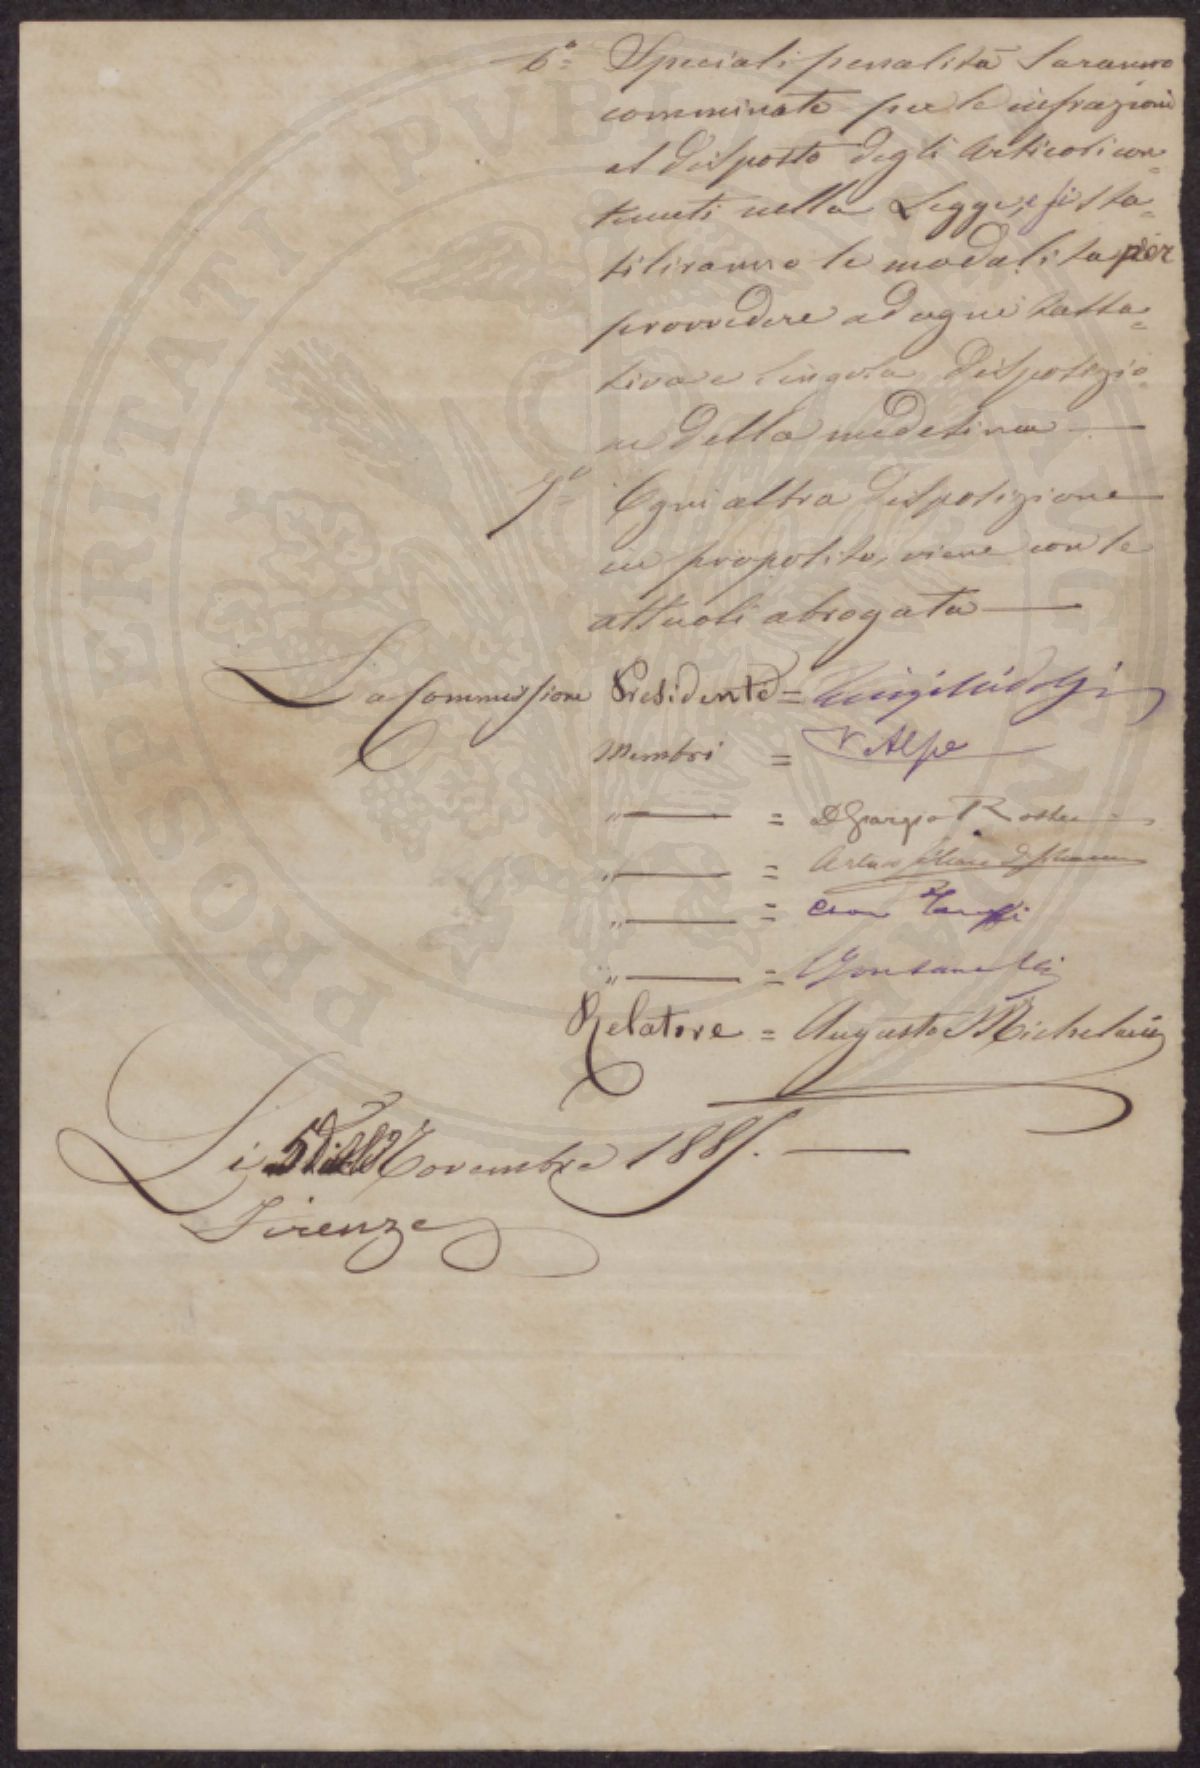 6º= Speciali penalità saranno
comminate per le infrazioni
al disposto degli articoli con=
tenuti nella Legge, e si sta=
biliranno le modalità per
provvedere ad ogni tassa=
tiva e singola disposizio=
ne della medesima —
7º= Ogni altra disposizione
in proposito, viene con le
attuali abrogata —
La Commissione Presidente = Luigi Ridolfi
Membri = V. Alpe
" — = D Giorgio Roster
" — = Arturo
" — =
" — =
Relatore = Augusto Michelacci
Li 5 Novembre 1885. —
Firenze
PROSPERITATI PVBLICAE